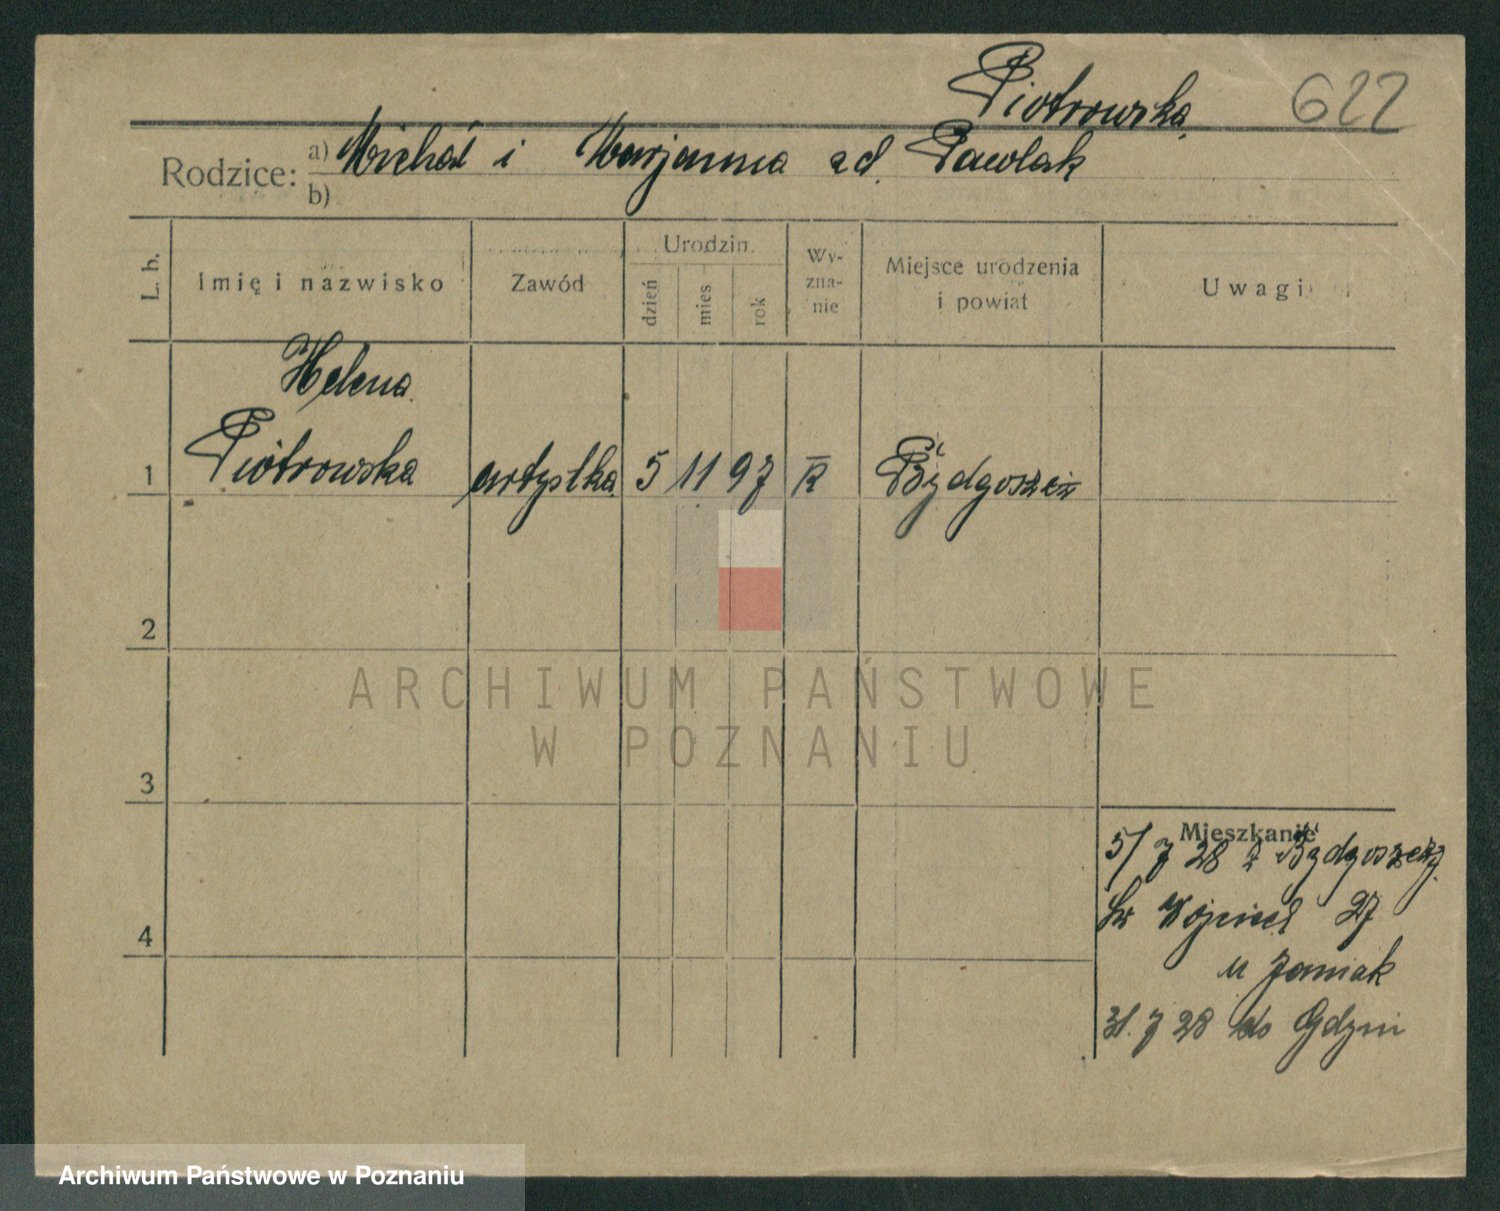 Piotrowska 622
Rodzice: a) Michał i Marjanna zd. Pawlak
b)
L. b. Imię i nazwisko Zawód Urodzin. dzień mies rok Wy-zna-nie Miejsce urodzenia i powiat Uwagi
Helena
1 Piotrowska artystka 5 11 97 R Bydgoszcz
2
ARCHIWUM PAŃSTWOWE
W POZNANIU
3
Mieszkanie
5/7 28 z Bydgoszczy
Św Wojciech 27
4
u Janiak
31. 7 28 do Gdyni
Archiwum Państwowe w Poznaniu